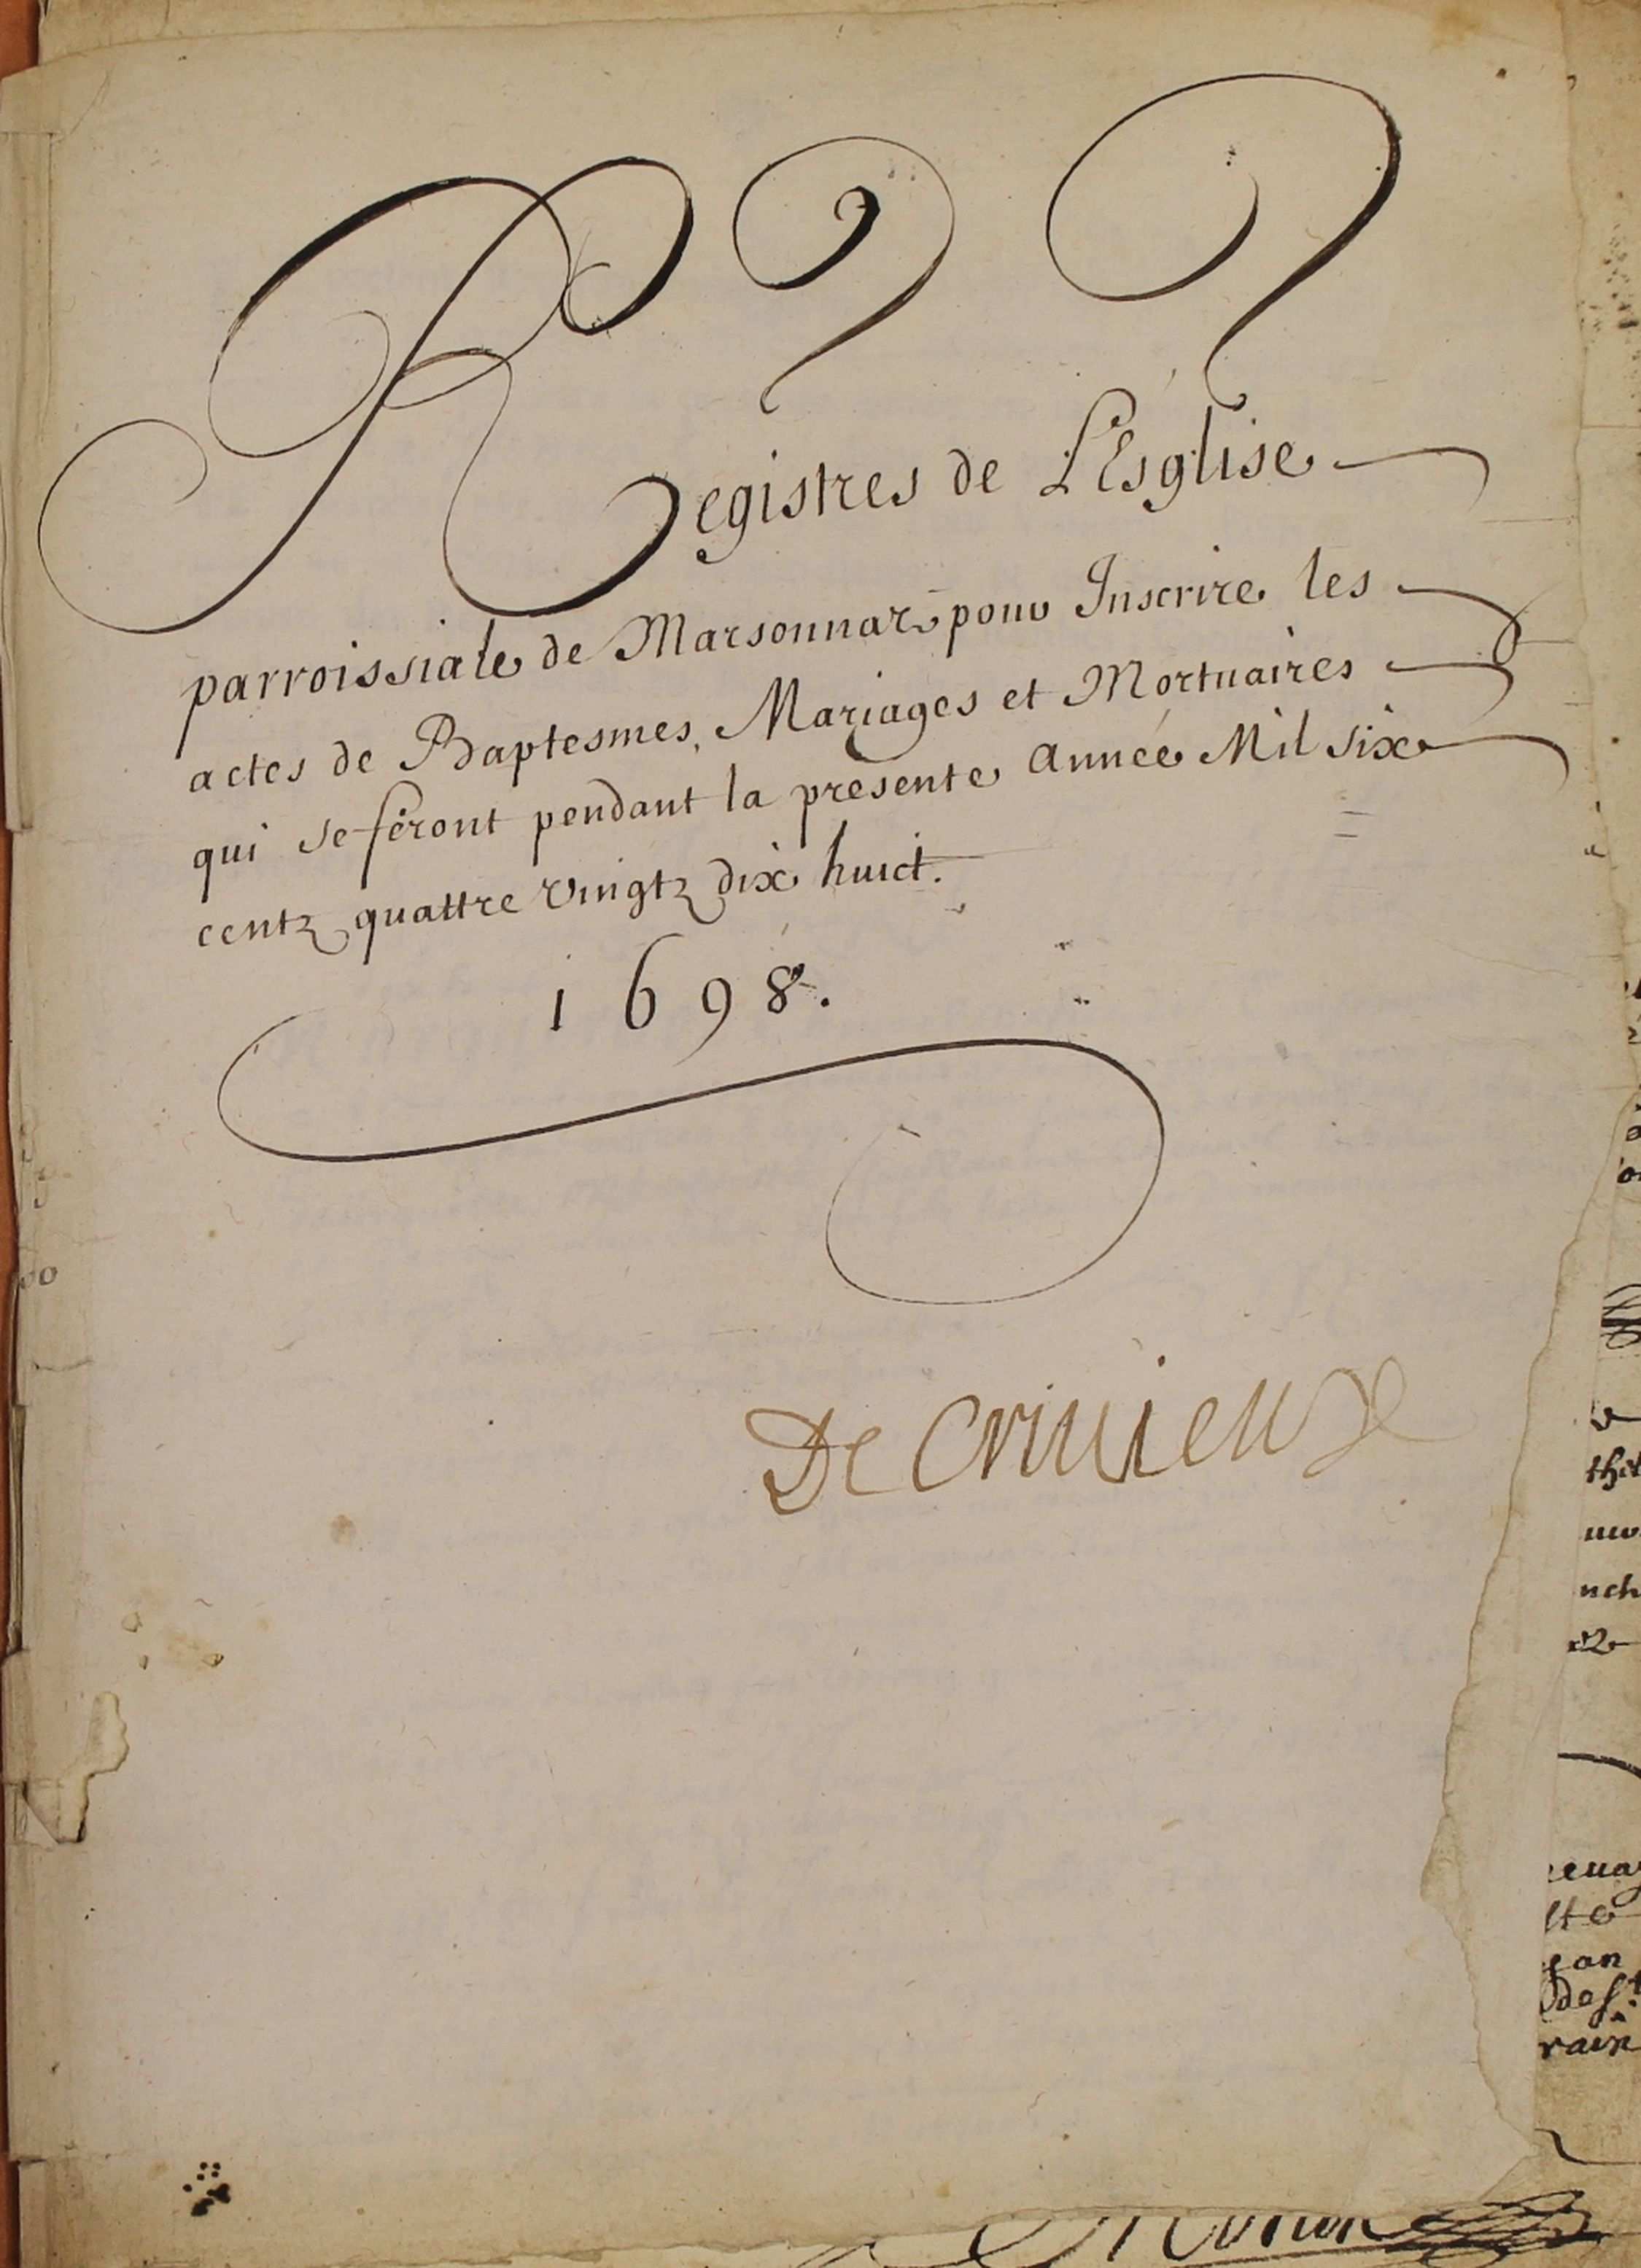 Registres de L'Esglise
parroissiale de Marsonnaz pour Inscrire les
actes de Baptesmes, Mariages et Mortuaires
qui se feront pendant la presente année Mil six
centz quattre vingtz dix huict.
1698.
De Criuieux